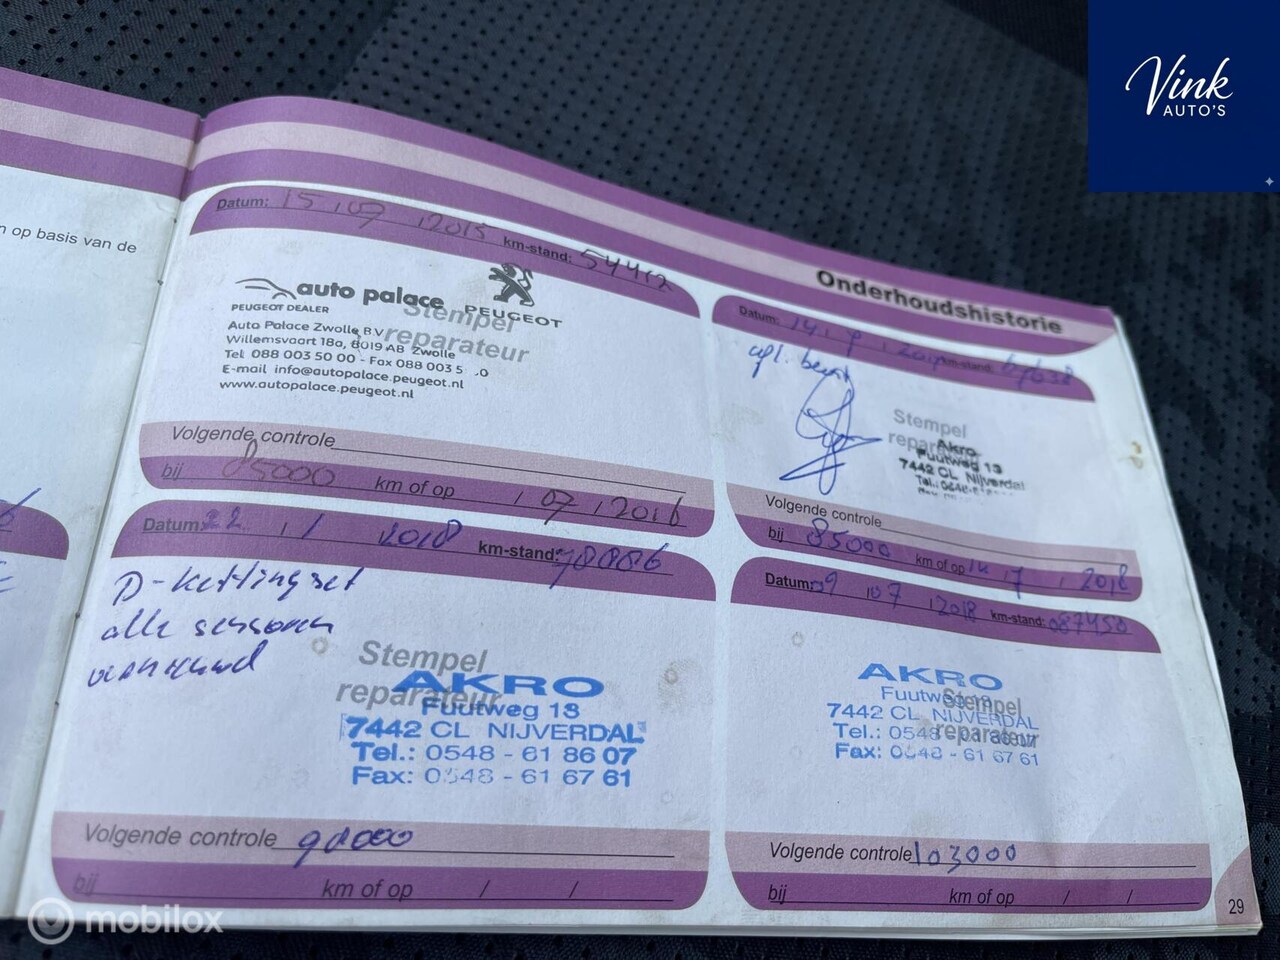 Vink
AUTO'S
n op basis van de
Onderhoudshistorie
Datum: 15 / 07 / 2015 km-stand: 54412
auto palace
PEUGEOT DEALER
PEUGEOT
Stempel
reparateur
Auto Palace Zwolle B.V.
Willemsvaart 18a, 8019 AB Zwolle
Tel 088 003 50 00 - Fax 088 003 5 0
E-mail info@autopalace.peugeot.nl
www.autopalace.peugeot.nl
Volgende controle
bij 85000 km of op / 07 / 2016
Datum: 14 / 7 / km-stand:
Stempel
reparateur
Akro
Fuutweg 13
7442 CL Nijverdal
Volgende controle
bij 85000 km of op 14 / 7 / 2018
Datum: 22 / 1 / 2018 km-stand:
D-kettingset
alle sensoren
Stempel
reparateur
AKRO
Fuutweg 13
7442 CL NIJVERDAL
Tel.: 0548 - 61 86 07
Fax: 0548 - 61 67 61
Volgende controle 98000
bij km of op / /
Datum: 09 / 07 / 2018 km-stand: 087450
AKRO
Fuutweg 13
Stempel
7442 CL NIJVERDAL
Tel.: 0548 - 61 86 07
reparateur
Fax: 0548 - 61 67 61
Volgende controle 103000
bij km of op / /
29
mobilox